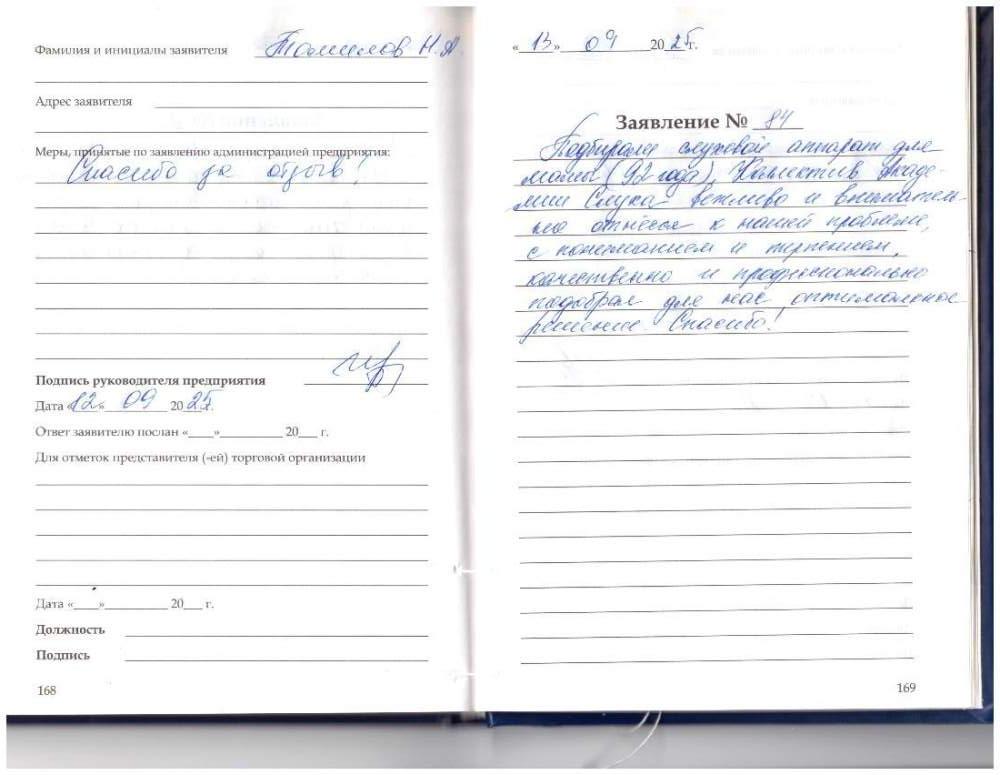 Фамилия и инициалы заявителя Томилов Н.А.
Адрес заявителя
Меры, принятые по заявлению администрацией предприятия:
Спасибо за отзыв!
Подпись руководителя предприятия
Дата «12» 09 2025 г.
Ответ заявителю послан «___»__________ 20___ г.
Для отметок представителя (-ей) торговой организации
Дата «____»__________ 20___ г.
Должность
Подпись
168
«13» 09 2025 г.
Заявление № 84
Подбирали слуховой аппарат для
мамы (92 года). Коллектив Акаде-
мии Слуха вежливо и вниматель-
но отнёсся к нашей проблеме,
с пониманием и терпением,
качественно и профессионально
подобрал для нас оптимальное
решение. Спасибо!
169